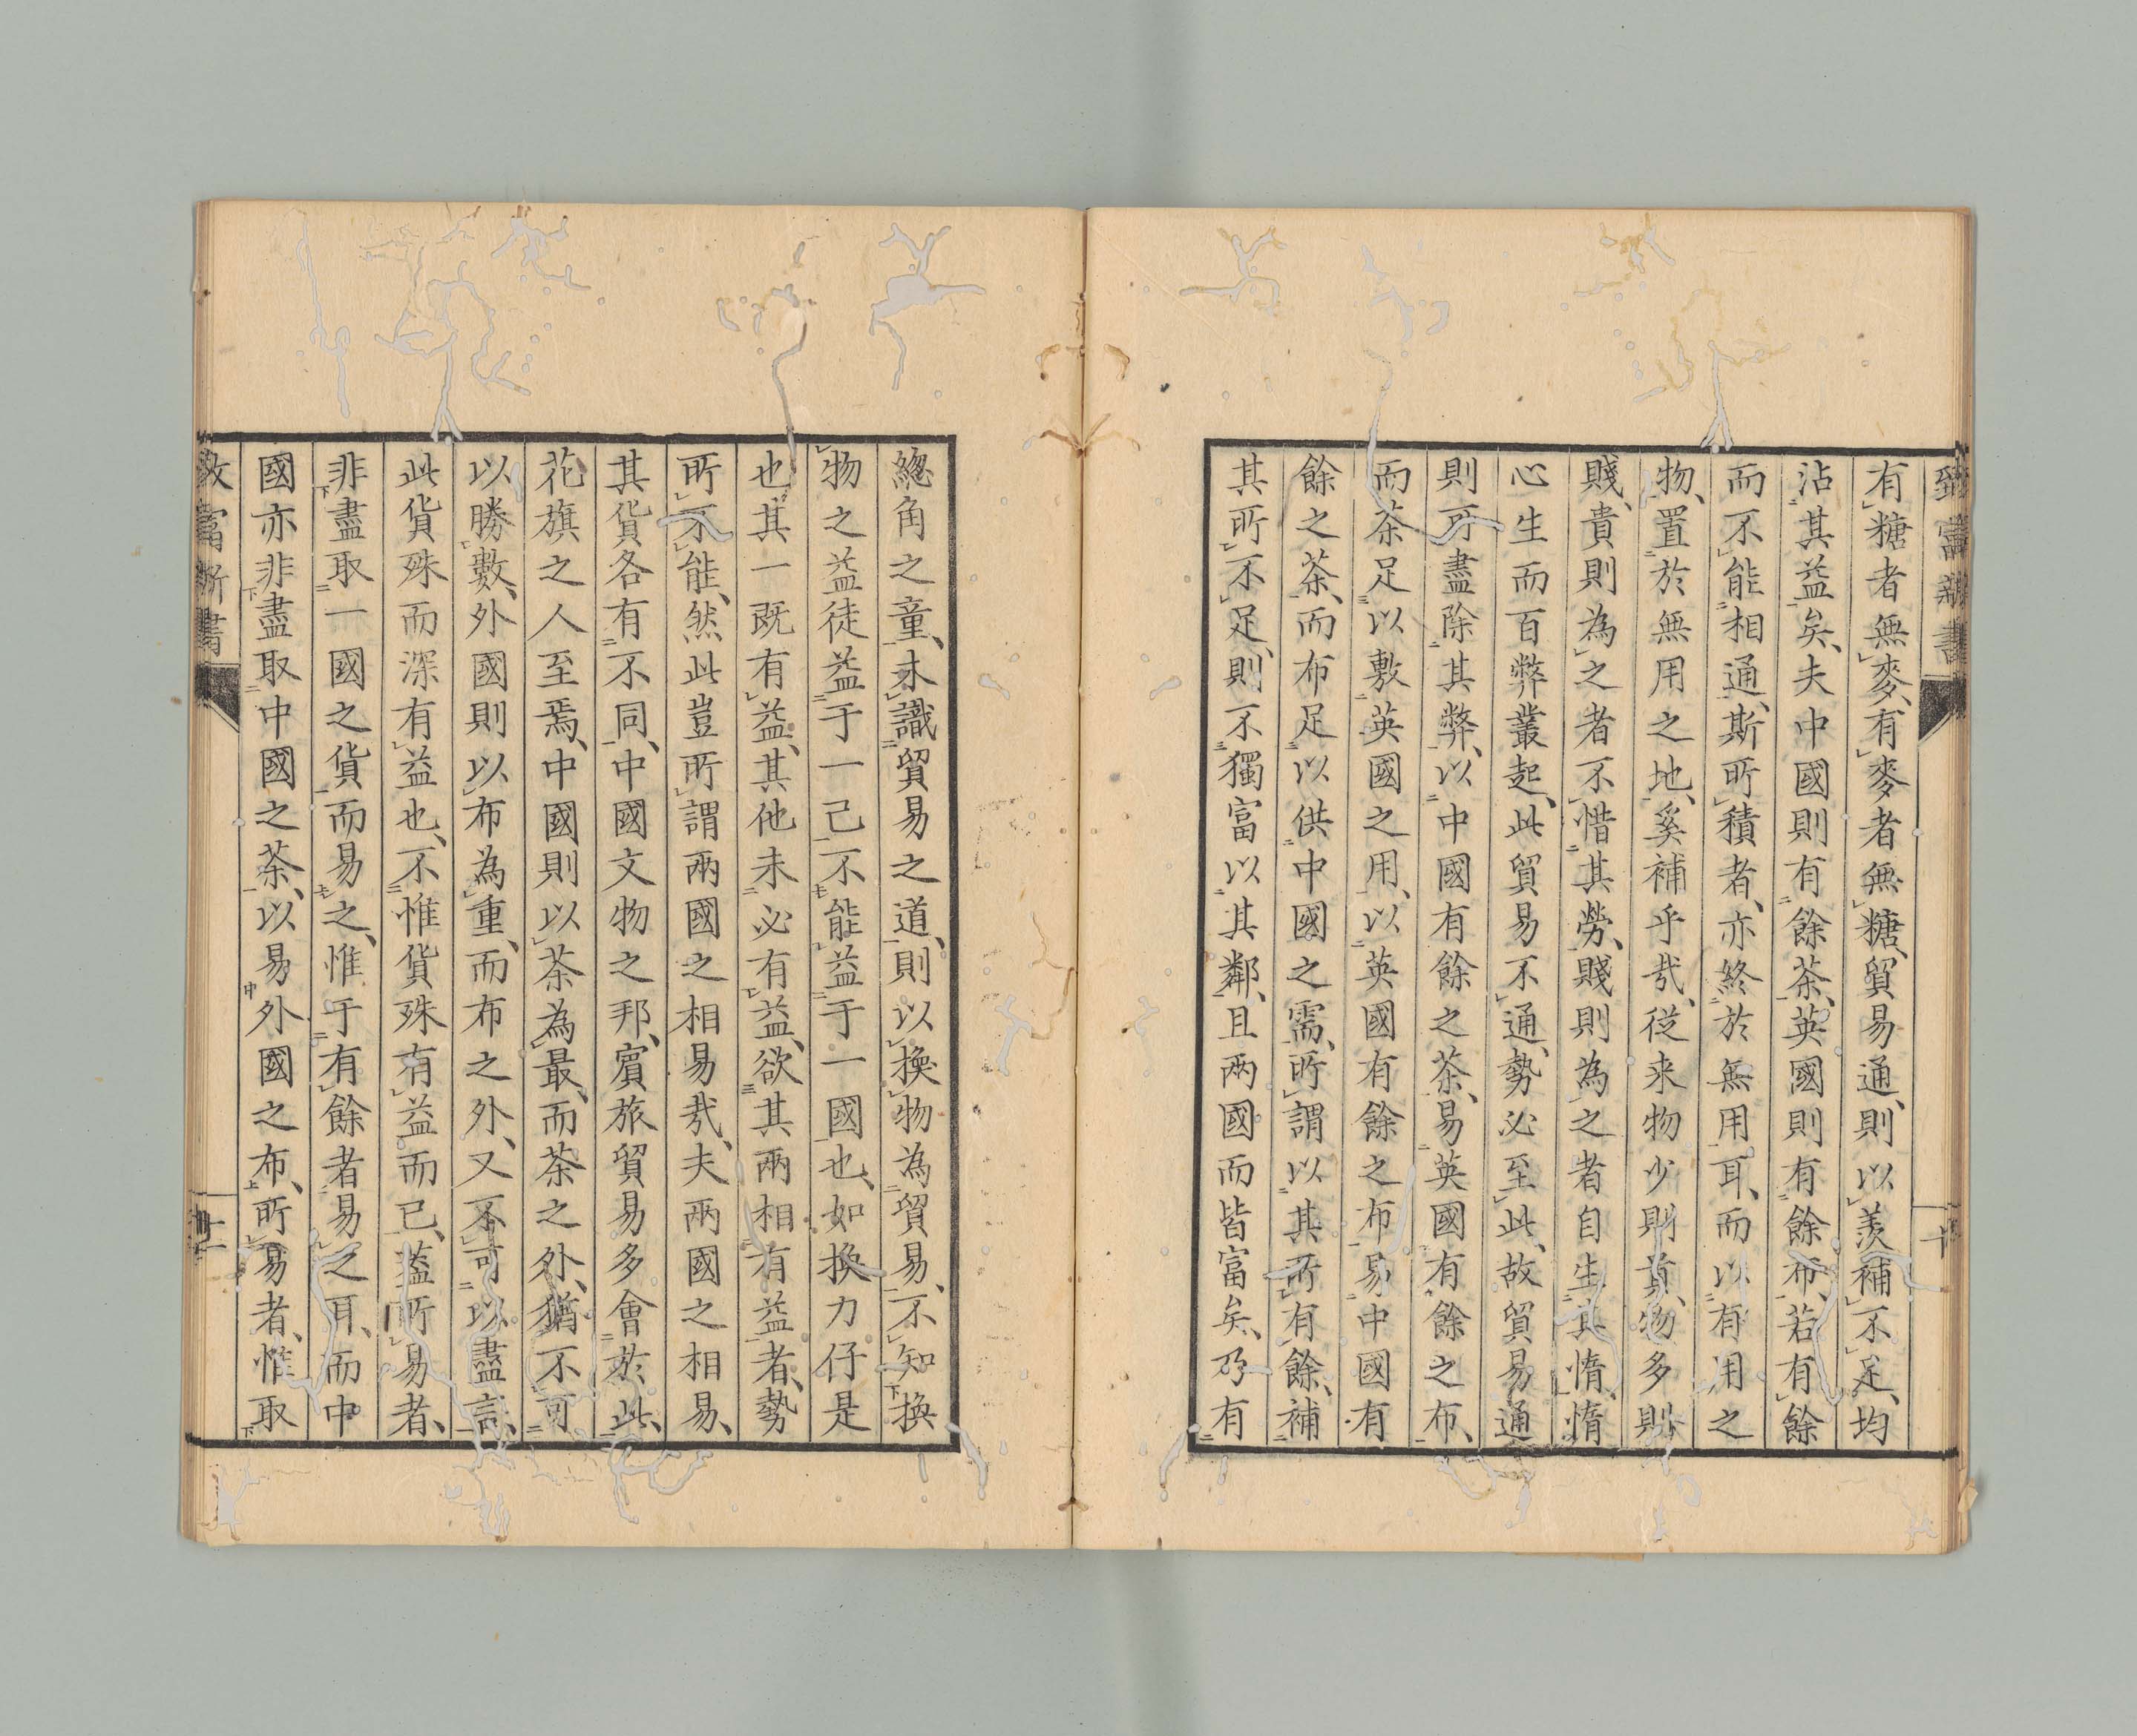 致富新書
十
有糖者無麥、有麥者無糖、貿易通、則以羨補不足、均
沾其益矣、夫中國則有餘茶、英國則有餘布、若有餘
而不能相通、斯所積者、亦終於無用耳、而以有用之
物、置於無用之地、奚補乎哉、從来物少則貴、物多則
賤、貴則為之者不惜其勞、賤則為之者自生其惰、惰
心生而百弊叢起、此貿易不通、勢必至此、故貿易通
則可盡除其弊、以中國有餘之茶、易英國有餘之布、
而茶足以敷英國之用、以英國有餘之布、易中國有
餘之茶、而布足以供中國之需、所謂以其所有餘、補
其所不足、則不獨富以其鄰、且兩國而皆富矣、乃有
總角之童、未識貿易之道、則以換物為貿易、不知換
物之益徒益于一己、不能益于一國也、如換力仔是
也、其一既有益、其他未必有益、欲其兩相有益者、勢
所不能、然此豈所謂兩國之相易哉、夫兩國之相易、
其貨各有不同、中國文物之邦、賓旅貿易多會於此、
花旗之人至焉、中國則以茶為最、而茶之外、猶不可
以勝數、外國則以布為重、而布之外、又不可以盡言、
此貨殊而深有益也、不惟貨殊有益而已、蓋所易者、
非盡取一國之貨、而易之、惟于有餘者易之耳、而中
國亦非盡取中國之茶、以易外國之布、所易者、惟取
致富新書
十一